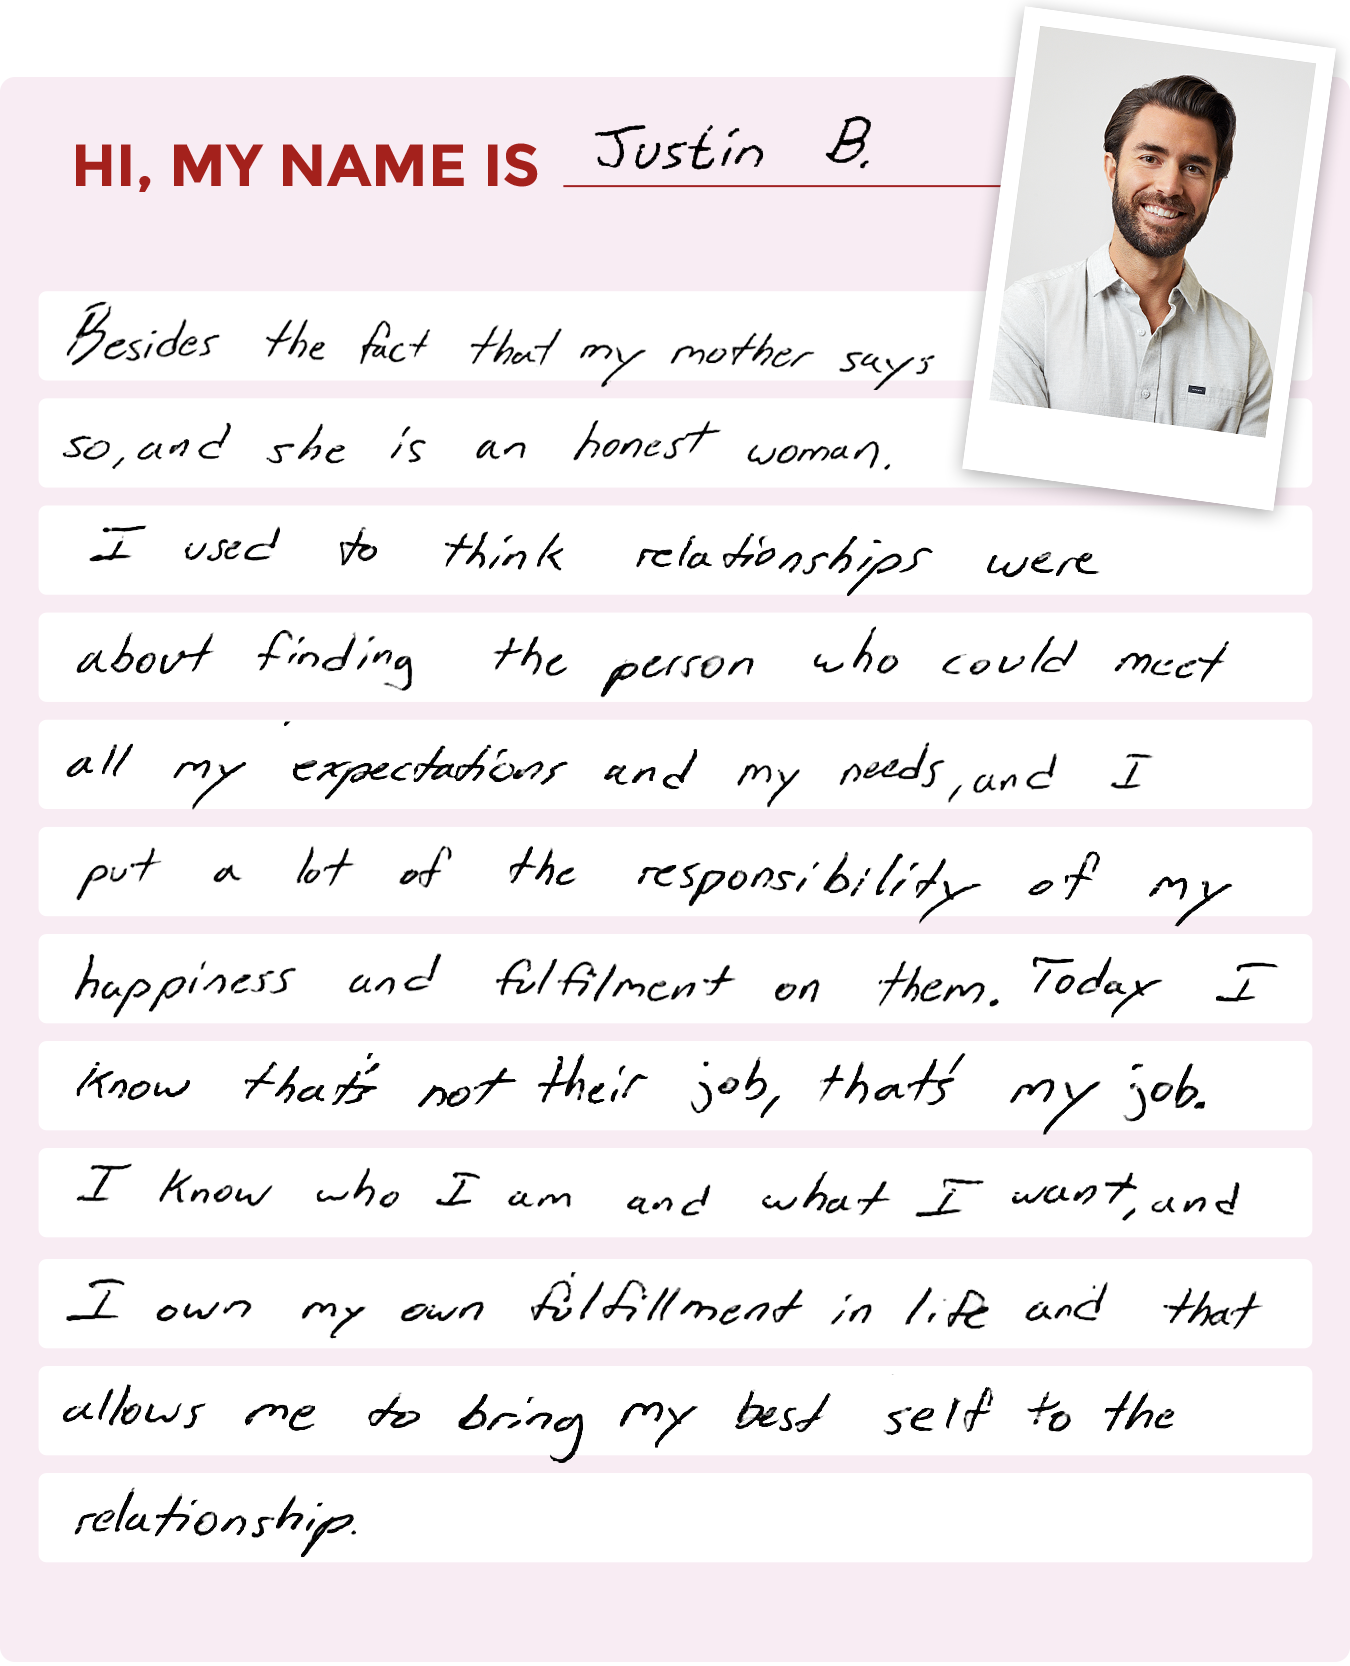 HI, MY NAME IS Justin B.
Besides the fact that my mother says
so, and she is an honest woman.
I used to think relationships were
about finding the person who could meet
all my expectations and my needs, and I
put a lot of the responsibility of my
happiness and fulfilment on them. Today I
know that's not their job, that's my job.
I know who I am and what I want, and
I own my own fulfillment in life and that
allows me to bring my best self to the
relationship.